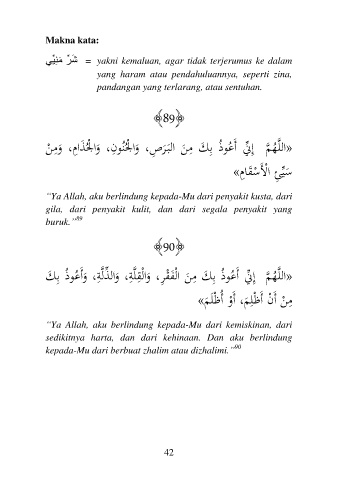 Makna kata:
شَرِّ مَنِيِّيْ = yakni kemaluan, agar tidak terjerumus ke dalam
yang haram atau pendahuluannya, seperti zina,
pandangan yang terlarang, atau sentuhan.
﴾89﴿
«اللَّهُمَّ إِنِّي أَعُوذُ بِكَ مِنَ البَرَصِ، وَالْجُنُونِ، وَالْجُذَامِ، وَمِنْ
سَيِّئِ الْأَسْقَامِ»
“Ya Allah, aku berlindung kepada-Mu dari penyakit kusta, dari
gila, dari penyakit kulit, dan dari segala penyakit yang
buruk.”89
﴾90﴿
«اللَّهُمَّ إِنِّي أَعُوذُ بِكَ مِنَ الْفَقْرِ، وَالْقِلَّةِ، وَالذِّلَّةِ، وَأَعُوذُ بِكَ
مِنْ أَنْ أَظْلِمَ، أَوْ أُظْلَمَ»
“Ya Allah, aku berlindung kepada-Mu dari kemiskinan, dari
sedikitnya harta, dan dari kehinaan. Dan aku berlindung
kepada-Mu dari berbuat zhalim atau dizhalimi.”90
42